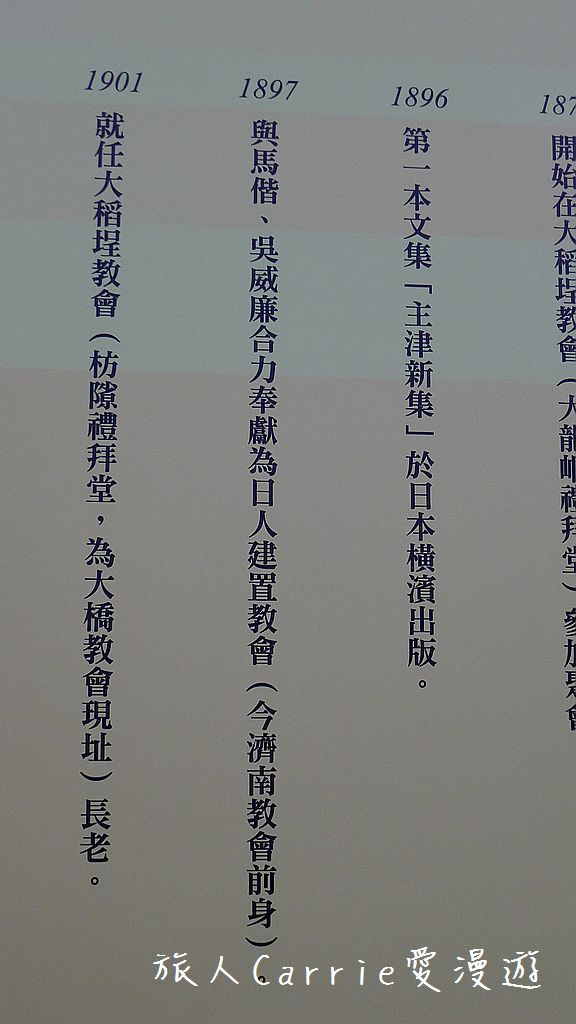 187
開始在大稻埕教會(大龍峒禮拜堂)參加聚會
1896
第一本文集「主津新集」於日本橫濱出版。
1897
與馬偕、吳威廉合力奉獻為日人建置教會(今濟南教會前身)。
1901
就任大稻埕教會(枋隙禮拜堂,為大橋教會現址)長老。
旅人Carrie愛漫遊